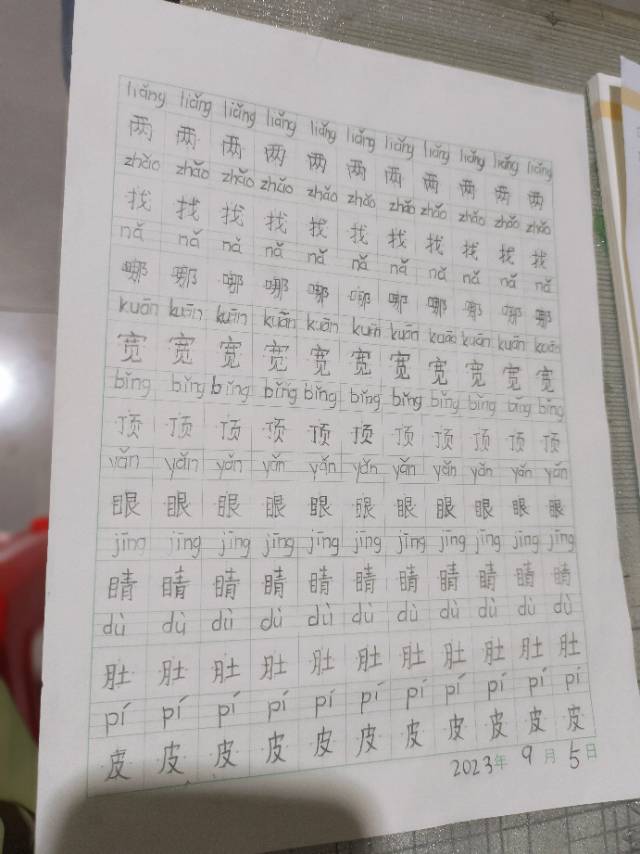 liǎng liǎng liǎng liǎng liǎng liǎng liǎng liǎng liǎng liǎng liǎng
两 两 两 两 两 两 两 两 两 两 两
zhǎo zhǎo zhǎo zhǎo zhǎo zhǎo zhǎo zhǎo zhǎo zhǎo zhǎo
找 找 找 找 找 找 找 找 找 找 找
nǎ nǎ nǎ nǎ nǎ nǎ nǎ nǎ nǎ nǎ nǎ
哪 哪 哪 哪 哪 哪 哪 哪 哪 哪 哪
kuān kuān kuān kuān kuān kuān kuān kuān kuān kuān kuān
宽 宽 宽 宽 宽 宽 宽 宽 宽 宽 宽
bǐng bǐng bǐng bǐng bǐng bǐng bǐng bǐng bǐng bǐng bǐng
顶 顶 顶 顶 顶 顶 顶 顶 顶 顶 顶
yǎn yǎn yǎn yǎn yǎn yǎn yǎn yǎn yǎn yǎn yǎn
眼 眼 眼 眼 眼 眼 眼 眼 眼 眼 眼
jīng jīng jīng jīng jīng jīng jīng jīng jīng jīng jīng
睛 睛 睛 睛 睛 睛 睛 睛 睛 睛 睛
dù dù dù dù dù dù dù dù dù dù dù
肚 肚 肚 肚 肚 肚 肚 肚 肚 肚 肚
pí pí pí pí pí pí pí pí pí pí pí
皮 皮 皮 皮 皮 皮 皮 皮 皮 皮 皮
2023年 9 月 5 日